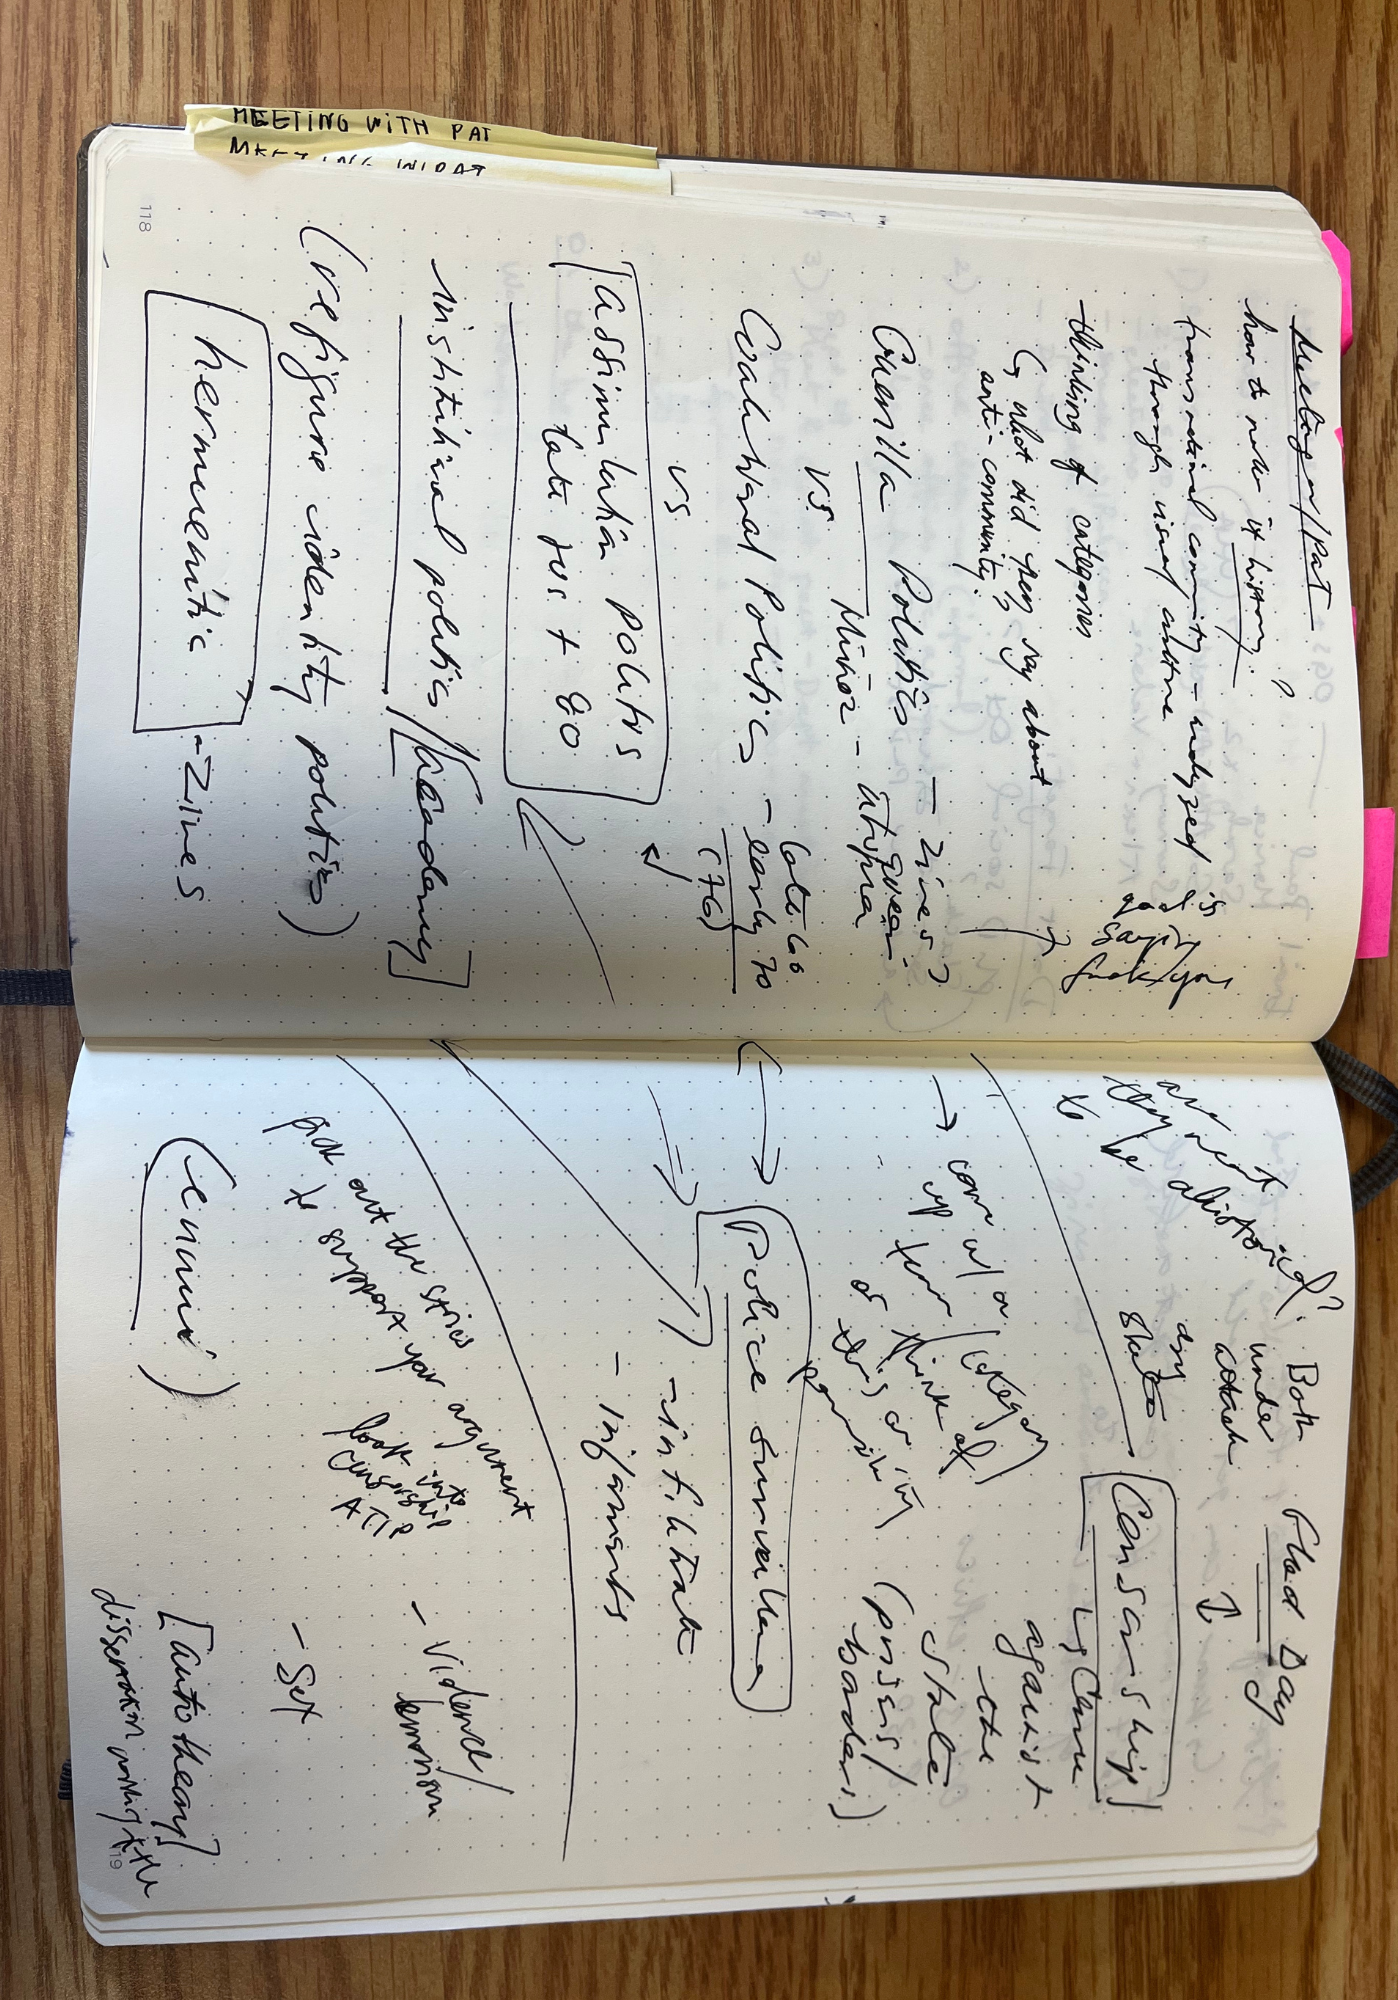 MEETING WITH PAT
Meeting w/ Pat
how to make it history?
transnational community - analyzed
through visual culture
thinking of categories
↳ what did they say about
anti-community?
goal is
saying
fuck you
Guerilla Politics — zines?
vs Muñoz - queer
utopia
Coalitional Politics - late 60
early 70
(76)
vs
[assimilation politics
late 70s + 80
institutional politics / [Academy]
(refigure identity politics)
hermeneutic - Zines
118
are
they next
to be ahistorical?
Both
under
attack
Glad Day
↓
any
state
[Censorship]
against
the
state
(pussis/
borders)
→ come w/ a
up term / category
think of
this or
[Police Surveillance]
- infiltrate
- informants
pick out the stories
to support your argument
look into
censorship
ATIP
- violence/
- Sex
(ennui)
[autotheory]
dissertation
119